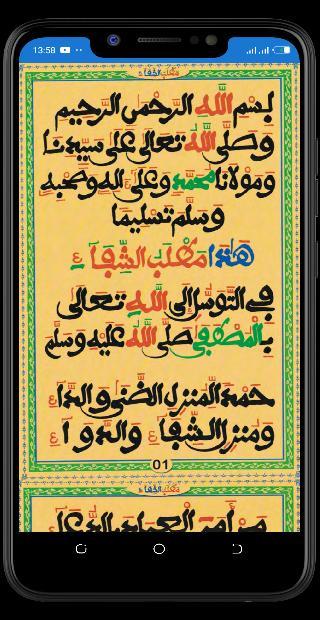 13:58
مطلب الشفاء
بسم الله الرحمن الرحيم
وصلى الله تعالى على سيدنا
ومولانا محمد وعلى اله وصحبه
وسلم تسليما
هذا مطلب الشفاء
في التوسل الى الله تعالى
بالمصطفى صلى الله عليه وسلم
حمدا لمنزل الضنى والداء
ومنزل الشفاء والدواء
01
مطلب الشفاء